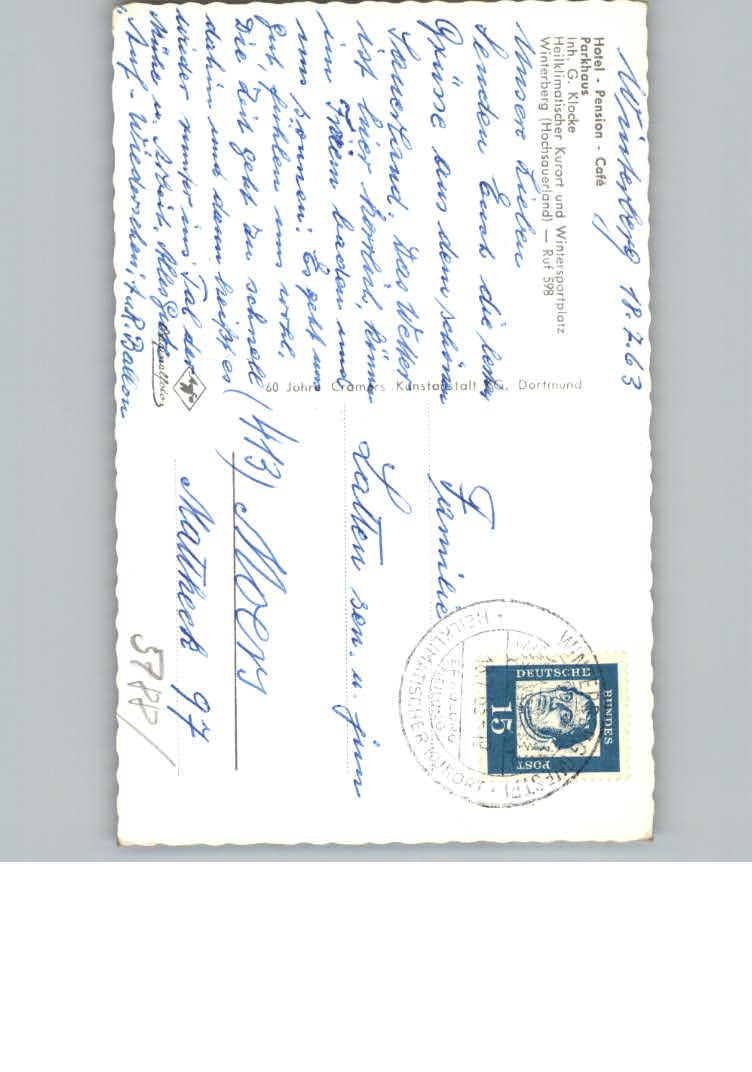 Winterberg 18.7.63
Hotel - Pension - Café
Parkhaus
Inh. G. Klocke
Heilklimatischer Kurort und Wintersportplatz
Winterberg (Hochsauerland) — Ruf 598
Unser Lieben
senden Euch die
Grüsse aus dem schönen
Sauerland. Das Wetter
ist hier herrlich, können
im Freien baden und
uns sonnen. Es geht uns
gut, fühlen uns wohl.
Die Zeit geht zu schnell
dahin und dann heißt es
wieder runter ins Tal der
Mühe u. Arbeit. Alles Gute
Auf-Wiedersehen, A. Ballon
60 Jahre Cramers Kunstanstalt KG, Dortmund
Agfa
Familie
Latten sen. u. jun
(413) Moers
Mattheck 97
5788/
WINTERBERG (WESTF)
HEILKLIMATISCHER KURORT
ERHOLUNG
HEILUNG
DEUTSCHE
BUNDES
POST
15